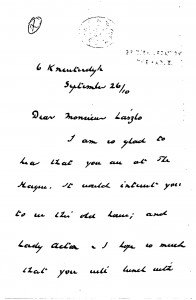 6 Kneuterdijk
September 26/10
Dear Monsieur László
I am so glad to
hear that you are at The
Hague. It would interest you
to see this old house; and
Lady Acton & I hope so much
that you will lunch with